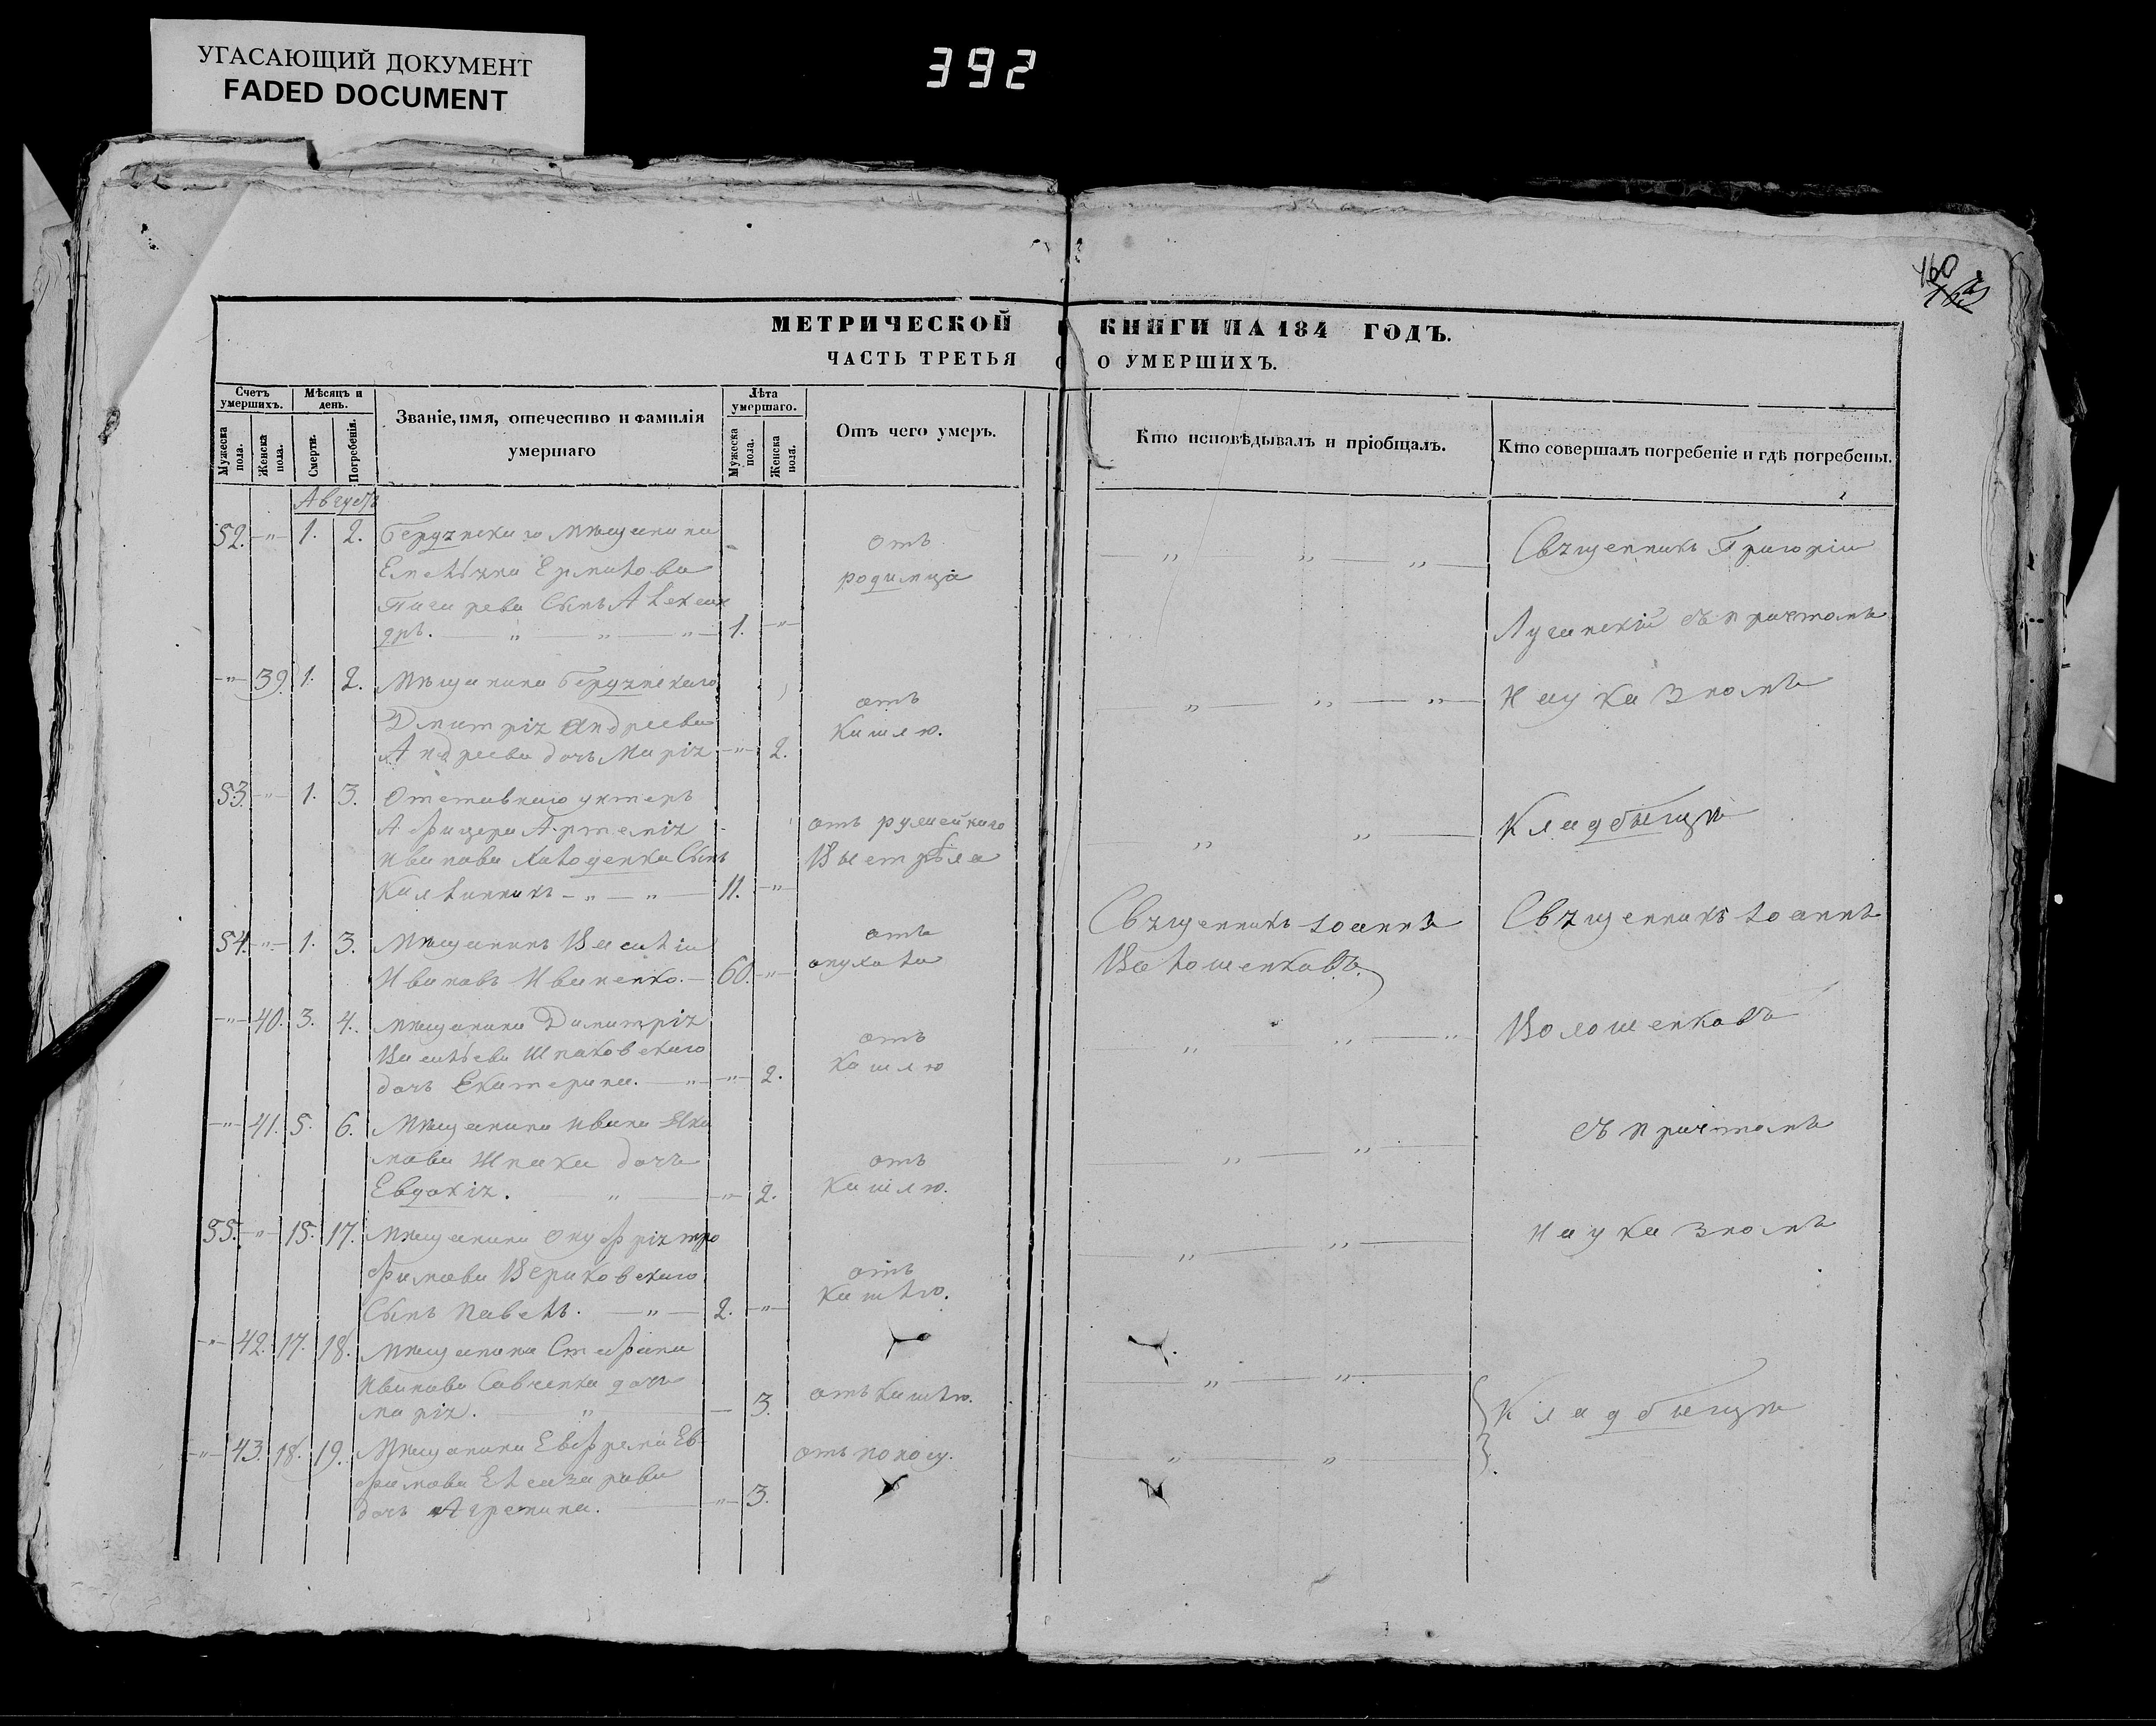 УГАСАЮЩИЙ ДОКУМЕНТ
FADED DOCUMENT
392
160
МЕТРИЧЕСКОЙ КНИГИ НА 184 ГОДЪ.
ЧАСТЬ ТРЕТЬЯ О УМЕРШИХЪ.
Счетъ умершихъ.
Мужеска пола.
Женска пола.
Мѣсяцъ и день.
Смерти.
Погребенія.
Званіе, имя, отечество и фамилія умершаго
Лѣта умершаго.
Мужеска пола.
Женска пола.
Отъ чего умеръ.
Кто исповѣдывалъ и пріобщалъ.
Кто совершалъ погребеніе и гдѣ погребены.
Августъ
52. -"- 1. 2. мѣщанина
Емеліяна Ермилова
сынъ Александ
ръ. " " " 1. -"-
отъ
родимца
Священникъ Григорій
Лусинскій съ причтомъ
-"- 39. 1. 2. Мѣщанина
Дмитрія Андреева
Андреева дочь Марія -"- 2.
отъ
кашлю.
На указномъ
53. -"- 1. 3. Отставнаго унтеръ
Афицера Артемія
Иванова сынъ
Калинникъ - " - " 11. -"-
отъ ружейнаго
выстрѣла
Кладбищѣ
54. -"- 1. 3. Мѣщанинъ Василій
Ивановъ Иваненко. 60. -"-
отъ
опухоли
Священникъ Іоаннъ
Волошенковъ
Священникъ Іоаннъ
-"- 40. 3. 4. мѣщанина Димитрія
Васильева Шпаковскаго
дочь Екатерина. " -"- 2.
отъ
кашлю
Волошенковъ
-"- 41. 5. 6. Мѣщанина Ивана Яки
мова Шпака дочь
Евдокія. " -"- 2.
отъ
кашлю.
съ причтомъ
55. -"- 15. 17. Мѣщанина Онуфрія Тро
фимова Вериковскаго
сынъ Павелъ. " 2. -"-
отъ
кашлю.
На указномъ
-"- 42. 17. 18. Мѣщанина Стефана
Иванова Савченка дочь
Марія. " 3.
отъ кашлю.
Кладбищѣ
-"- 43. 18. 19. Мѣщанина Евфрема Ев
фимова Елеазарова
дочь Агрепина. -"- 3.
отъ поносу.